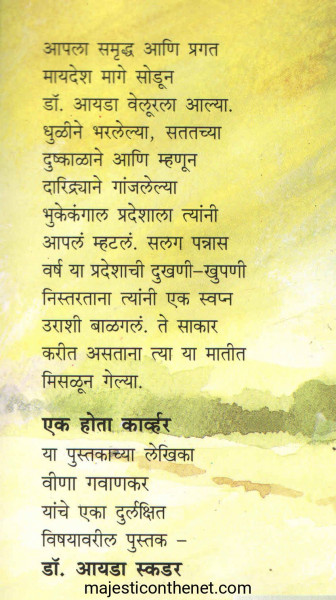 आपला समृद्ध आणि प्रगत
मायदेश मागे सोडून
डॉ. आयडा वेलूरला आल्या.
धुळीने भरलेल्या, सततच्या
दुष्काळाने आणि म्हणून
दारिद्र्याने गांजलेल्या
भुकेकंगाल प्रदेशाला त्यांनी
आपलं म्हटलं. सलग पन्नास
वर्ष या प्रदेशाची दुखणी-खुपणी
निस्तरताना त्यांनी एक स्वप्न
उराशी बाळगलं. ते साकार
करीत असताना त्या या मातीत
मिसळून गेल्या.
एक होता कार्व्हर
या पुस्तकाच्या लेखिका
वीणा गवाणकर
यांचे एका दुर्लक्षित
विषयावरील पुस्तक –
डॉ. आयडा स्कडर
majesticonthenet.com